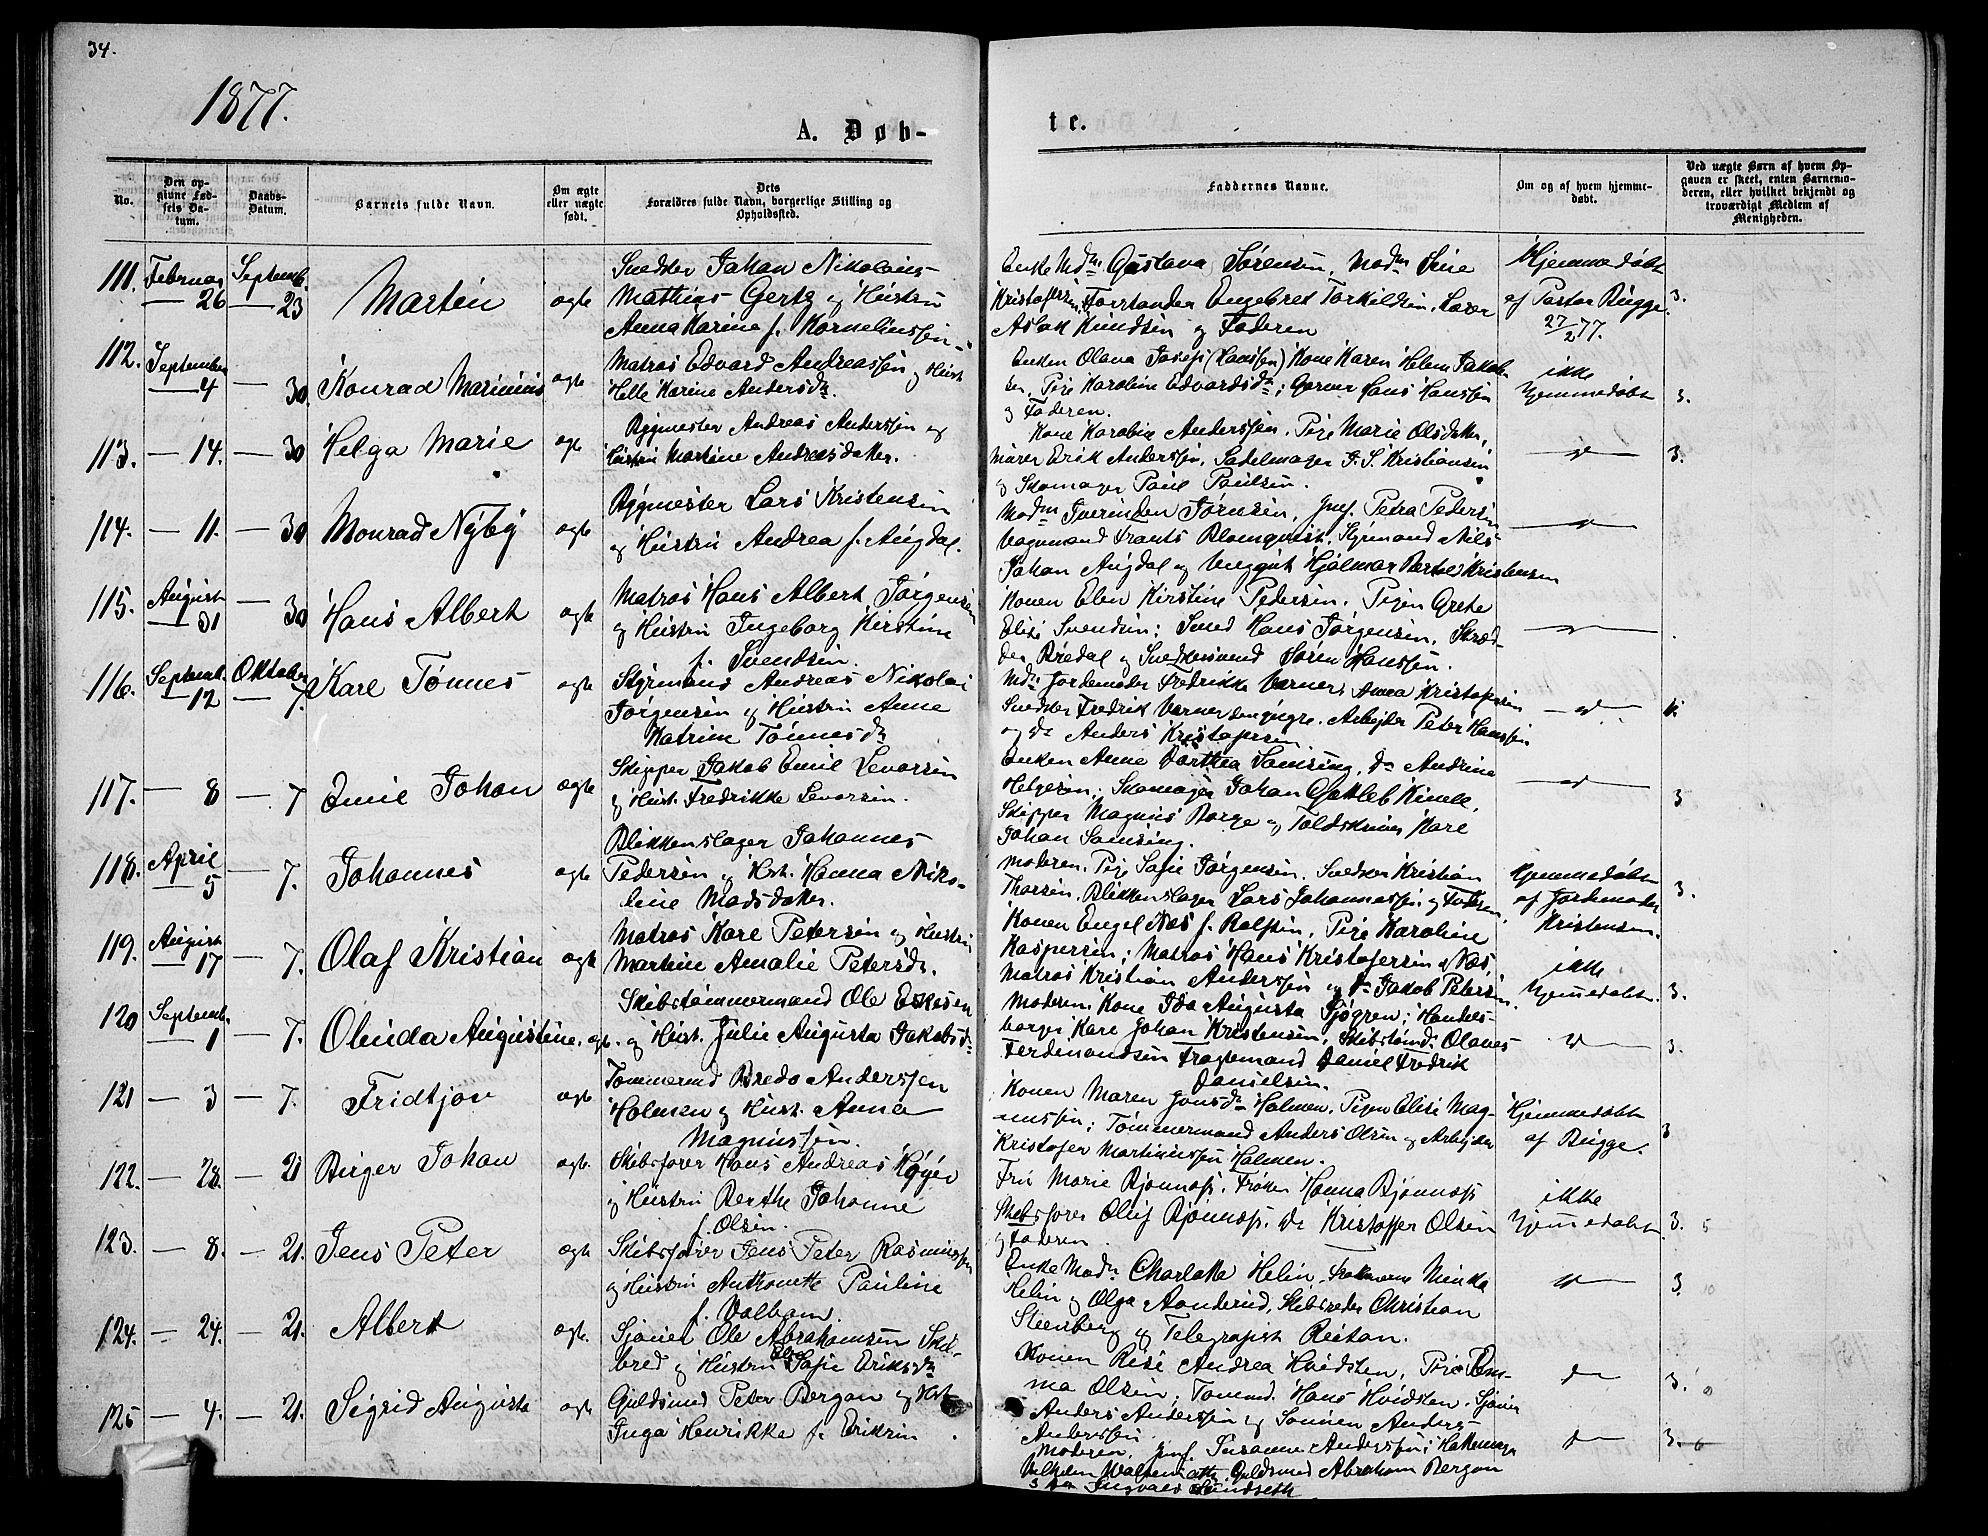 34.
1877.
A. Døb-
te.
No.
Den op-
givne Fød-
sels Da-
tum.
Daabs-
Datum.
Barnets fulde Navn.
Om ægte
eller uægte
født.
Dets
Forældres fulde Navn, borgerlige Stilling og
Opholdssted.
Faddernes Navne.
Om og af hvem hjemme-
døbt.
Ved uægte Børn af hvem Op-
gaven er skeet, enten Barnemo-
deren, eller hvilket bekjendt og
troværdigt Medlem af
Menigheden.
111. Februar 26 Septemb. 23 Martin ægte
Snedker Johan Nikolaus
Mathias Gertz og Hustru
Anna Karine f. Korneliussen
Enke Mdm Gustava Sørensen, Madm Sine
Kristofersen, Forstander Engebret Torkildsen, Lærer
Aslak Knudsen og Faderen
Hjemmedøbt
af Pastor Bugge
27/2 77.
3.
112. September 4 — 30. Konrad Marinius ægte
Matros Edvard Andreassen og Hust.
Helle Karine Andersdr.
Enken Olava Josefs (Hanssen) Kone Karen Helene Jakob-
sen, Pige Karoline Edvardsdr; Garver Hans Hanssen
og Faderen.
ikke
hjemmedøbt
3.
113. — 14. — 30 Helga Marie ægte
Rygmester Andreas Anderssen og
Hustru Martine Andreasdatter.
Kone Karoline Anderssen, Pige Marie Olsdatter,
Murer Erik Anderssen, Sadelmager J. S. Kristiansen
og Skomager Paul Paulsen.
3.
114. — 11. — 30 Monrad Nyby ægte
Rygmester Lars Kristensen
og Hustru Andrea f. Augdal.
Jørnsen, Jmf. Petra Pedersen
Vognmand Frants Blomqvist, Styrmand Nils
Johan Augdal og Unggut Hjalmar Bertel Kristensen
115. August 31 — 30 Hans Albert ægte
Matros Hans Albert Jørgensen
og Hustru Ingeborg Kirstine
f. Svendsen.
Konen Elen Kirstine Pedersen, Pigen Grete
Elise Svendsen; Smed Hans Jørgensen, Skræd-
der Bredal og Snedkersvend Søren Hanssen.
116. Septemb. 12 Oktober — 7. Karl Tønnes ægte
Styrmand Andreas Nikolai
Jørgensen og Hustru Anne
Katrine Tønnesdr
Md. Jordemoder Fredrikke Varner, Anna Kristofersen
Snedker Fredrik Varner den yngre, Arbejder Peter Hanssen
og do Anders Kristofersen
117. — 8 — 7 Emil Johan ægte
Skipper Jakob Emil Levorsen
og Hust. Fredrikke Levorsen.
Enken Anne Dorthea Samsing, do Andrine
Helgesen; Skomager Johan Gottleb Kimell,
Skipper Magnus Borge og Toldskriver Karl
Johan Samsing.
3
118. April 5 — 7. Johannes ægte
Blikkenslager Johannes
Pedersen og Hst. Hanna Niko-
line Madsdatter.
Moderen, Pige Sofie Jørgensen, Snedker Kristian
Thorsen, Blikkenslager Lars Johannessen og Faderen
Hjemmedøbt
af Jordemoder
Kristensen.
3.
119. August 17 — 7. Olaf Kristian ægte
Matros Karl Petersen og Hustru
Martine Amalie Petersdr.
Konen Engel Næs f. Rolfsen, Pige Karoline
Kaspersen; Matros Hans Kristofersen Næs,
Matros Kristian Anderssen og do Jakob Petersen
ikke
hjemmedøbt.
3.
120 Septemb. 1 — 7. Olinda Augustine. ægte.
Skibstømmermand Ole Eskesen
og Hust. Julie Augusta Jakobsdr
Moderen, Kone Ida Augusta Sjøgren; Handels-
borger Karl Johan Kristensen, Skibstømd. Olaves
Ferdinandsen Fragtemand Daniel Fredrik
Danielsen.
3.
121 — 3 — 7. Fridtjov ægte
Tømmermd Bredo Anderssen
Holmen og Hust. Anna
Magnussen.
Konen Maren Jonsdr Holmen, Pigen Elise Mag-
nussen; Tømmermand Anders Olsen og Arbejder
Kristofer Martinussen Holmen.
Hjemmedøbt
af Bugge.
3
122. — 28. — 21 Birger Johan ægte.
Skibsfører Hans Andreas Høyer
og Hustru Berthe Johanne
f. Olsen.
Fru Marie Bjønness, Frøken Hanna Bjønness
Skibsfører Oluf Bjønness, do Kristoffer Olsen
og Faderen.
ikke
hjemmedøbt
3. 5
123. — 8. — 21. Jens Peter ægte
Skibsfører Jens Peter Rasmussen
og Hustru Anthonette Pauline
f. Valbom.
Enke Madm Charlotte Helin, Frøknerne Minka
Helin og Olga Aanderud, Skibsreder Christian
Steensberg og Telegrafist Reitan.
3. 10
124. — 24. — 21. Albert ægte.
Sjømd Ole Abrahamsen Skil-
bred og Hustru Else Sofie Eriksdr
Konen Rise Andrea Hvidsten, Pige Em-
ma Olsen; Tømmd. Hans Hvidsten, Sjømd
Anders Anderssen og Sønnen Anders
Anderssen.
3.
125 — 4. — 21. Sigrid Augusta ægte
Guldsmed Peter Bergan og Hst
Inga Henrikke f. Eriksen
Moderen, Jmf. Susanne Anderssen; Hattemager
Vilhelm, Guldsmed Abraham Bergan
Ingvald Sundseth
3. 6